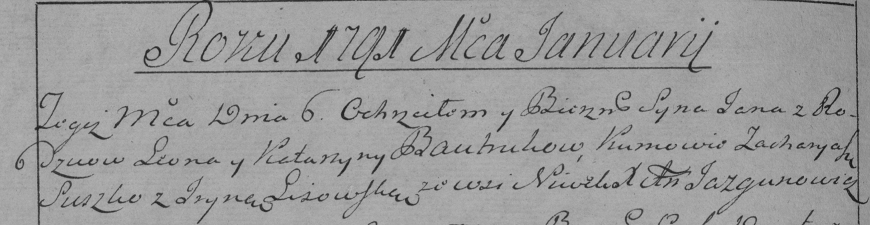 Roku 1791 Mca Januarij
Tegoż Mca Dnia 6. Ochrzciłem y Bierzm Syna Jana z Ro-
6 dziców Leona y Katarzyny Bautrukow, Kumowie Zacharyasz
Suszko z Iryną Lisowską ze wsi Jazgunowicz